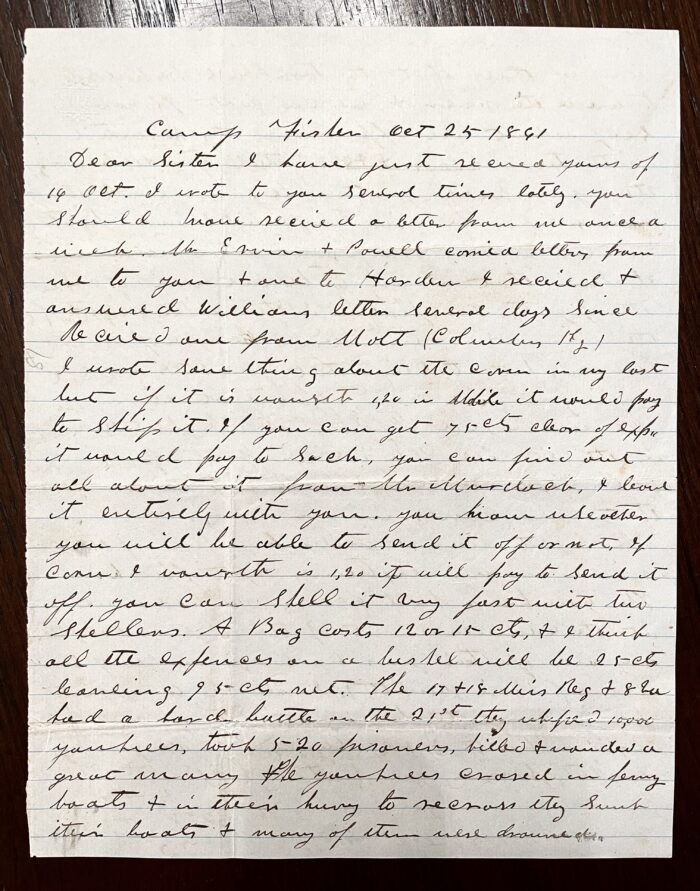 Camp Fisher Oct 25 1861
Dear Sister I have just recived yours of
16 Oct. I wrote to you several times lately. you
should have recived a letter from me once a
week. Mr Ervin + Powell carried letters from
me to you + one to Harden I recived +
answered Williams letter several days since
Recived one from Mott (Columbus Ky)
I wrote some thing about the corn in my last
but if it is wourth 1,20 in it would pay
to ship it. If you can get 75 cts clear of
it would pay to sack, you can find out
all about it from Mr Murdock, I leave
it entirely with you. you know wheather
you will be able to send it off or not. If
corn I wourth is 1,20 it will pay to send it
off. you can shell it very fast with two
shellers. A Bag costs 12 or 15 cts, + I think
all the expences on a bushel will be 25 cts
leaveing 95 cts net. The 17 + 18 Miss Reg + 8 Va
had a hard battle on the 21st they whiped 10,000
yankees, took 520 prisoners, killed + wounded a
great many The yankees crossed in ferry
boats + in their hurry to recross they sunk
their boats + many of them were drowned.